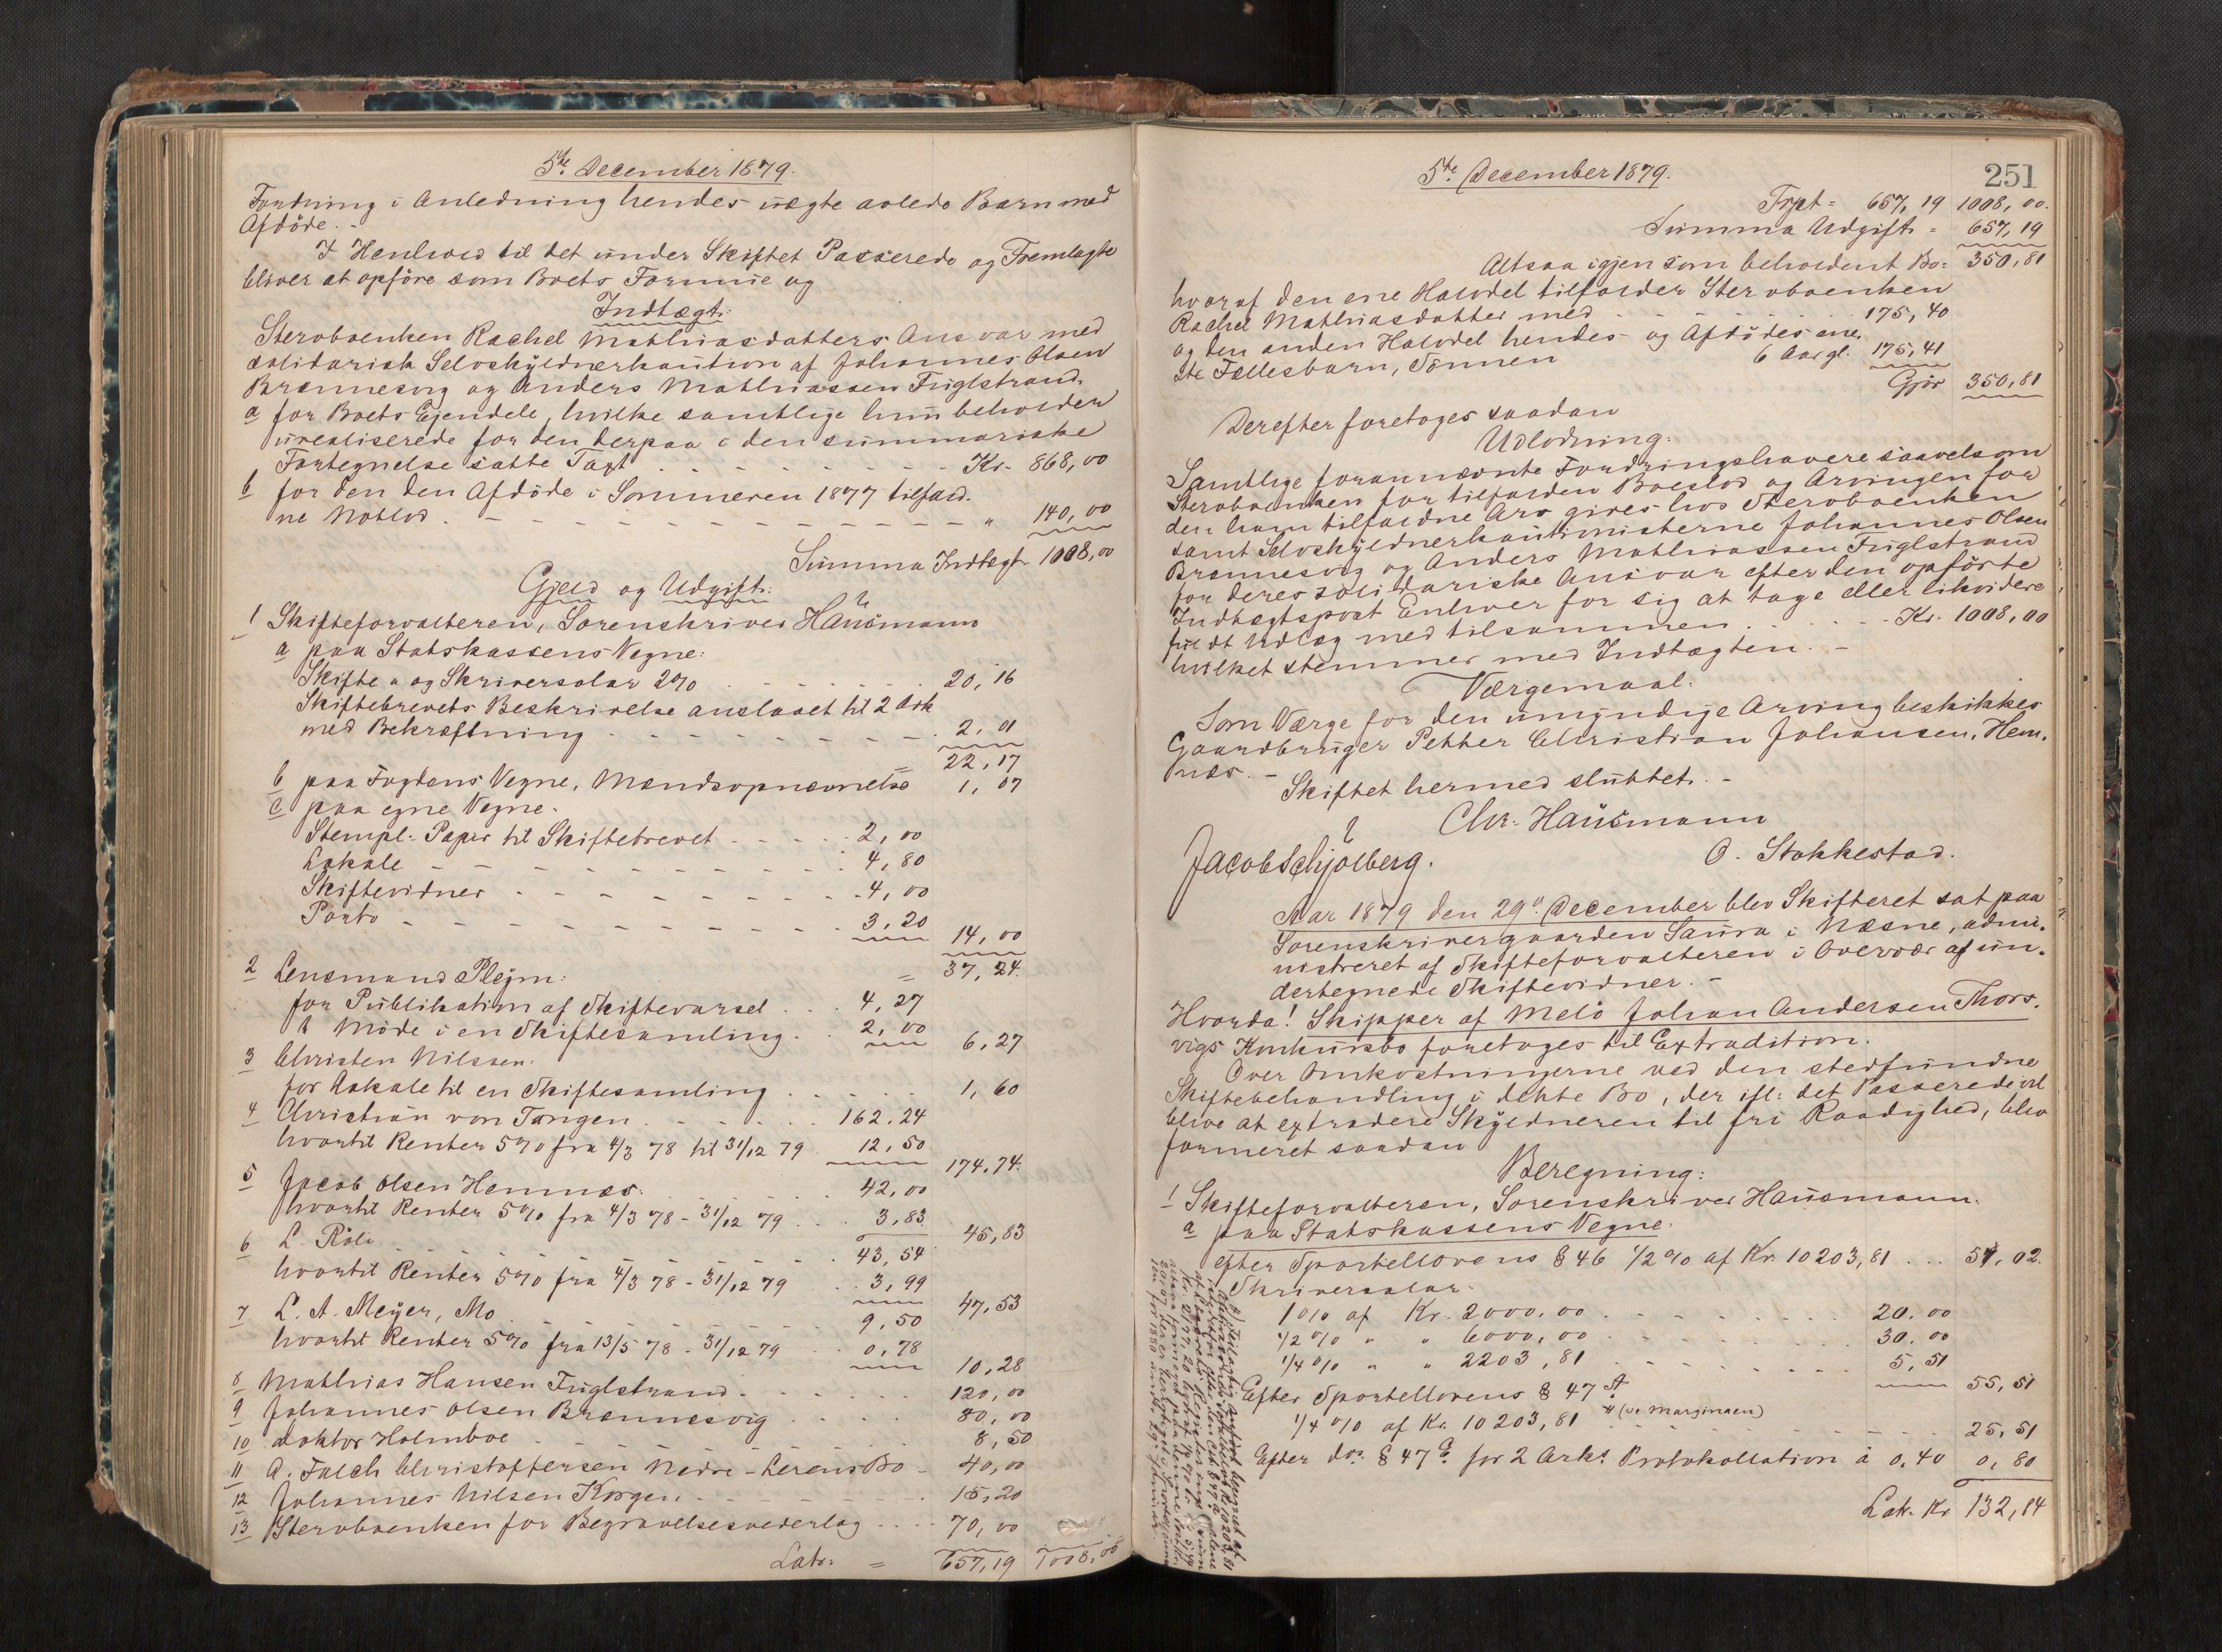 5te December 1879.
Fordring i Anledning hendes uægte avlede Barn med
Afdöde. -
I Henhold til det under Skiftet Passerede og Fremlagte
bliver at opföre som Boets Formue og
Indtægt:
Sterboenken Rachel Mathiasdatters Ansvar med
solidarisk Selvskyldnerkaution af Johannes Olsen
Brennesvig og Anders Mathiassen Fuglstrand.
a for Boets Ejendele, hvilke samtlige hun beholder
urealiserede for den derpaa i den summariske
Fortegnelse satte Taxt - - - Kr. 868,00
b for den den Afdöde i Sommeren 1877 tilfald.
ne Notlod - - - " 140,00
Summa Indtægt 1008,00
Gjeld og Udgift:
1 Skifteforvalteren, Sorenskriver Hausmann
a paa Statskassens Vegne:
Skifte- og Skriversalar 2% - - - 20,16
Skiftebrevets Beskrivelse anslaaet til 2 Ark
med Bekræftning - - - 2,01
= 22,17
b paa Fogdens Vegne, Mandsopnævnelse 1,07
c paa egne Vegne.
Stempl. Papir til Skiftebrevet - - - 2,00
Lokale - - - 4,80
Skiftevidner - - - 4,00
Porto - - - 3,20
14,00
= 37,24.
2 Lensmand Plejm:
for Publikation af Skiftevarsel - - - 4,27
" Möde i en Skiftesamling - - 2,00
6,27
3 Christen Nilssen:
for Lokale til en Skiftesamling - - - 1,60
4 Christian von Tangen - - - 162.24
hvortil Renter 5% fra 4/3 78 til 31/12 79 12,50
174.74.
5 Jacob Olsen Hemnes. - - - 42,00
hvortil Renter 5% fra 4/3 78 - 31/12 79 - - 3,83.
45,83
6 L. Röli - - - 43,54
hvortil Renter 5% fra 4/3 78 - 31/12 79 - - 3,99
47,53
7 L. A. Meyer, Mo - - - 9,50
hvortil Renter 5% fra 13/5 78 - 31/12 79 - - 0,78
10,28
8 Mathias Hansen Fuglstrand - - - 120,00
9 Johannes Olsen Brennesvig - - - 80,00
10 doktor Holmboe - - - 8,50
11 A. Falch Christoffersen Nedre-Lerens Bo - 40,00
12 Johannes Nilsen Korgen - - - 15,20
13 Sterboenken for Begravelsesvederlag - - - 70,00
Latr. = 657,19 1008,00
5te December 1879.
251
Trpt = 657,19 1008,00.
Summa Udgift = 657,19
Altsaa igjen som beholdent Bo = 350,81
hvoraf den ene Halvdel tilfalder Sterboenken
Rachel Mathiasdatter med - - - 175,40
og den anden Halvdel hendes og Afdödes ene-
ste Fællesbarn, Sönnen 6 Aar gl. 175,41
Gjör 350,81
Derefter foretoges saadan
Udlodning:
Samtlige forannævnte Fordringshavere saavelsom
Sterboenken for tilfalden Boeslod og Arvingen for
den ham tilfaldne Arv gives hos Sterboenken
samt Selvskyldnerkautionisterne Johannes Olsen
Brennesvig og Anders Mathiassen Fuglstrand
for deres solidariske Ansvar efter den opförte
Indtægtspost Enhver for sig at tage eller likvidere
fuldt Udlæg med tilsammen - - - Kr. 1008,00
hvilket stemmer med Indtægten. -
Værgemaal:
Som Værge for den umyndige Arving beskikkes
Gaardbruger Petter Christian Johansen, Hem-
næs. -
Skiftet hermed sluttet. -
Chr. Hausmann
Jacob Schjolberg.
O. Stokkestad.
Aar 1879 den 29de December blev Skifteret sat paa
Sorenskrivergaarden Saura i Næsne, admi-
nistreret af Skifteforvalteren i Overvær af un-
dertegnede Skiftevidner. -
Hvorda! Skipper af Melö Johan Andersen Thors-
vigs Konkursbo foretoges til Extradition.
Over Omkostningerne ved den stedfundne
Skiftebehandling i dette Bo, der ifl: det Passerede vil
blive at extradere Skyldneren til fri Raadighed, blev
formeret saadan
Beregning:
1 Skifteforvalteren, Sorenskriver Hausmann.
a paa Statskassens Vegne:
efter Sportellovens § 46 1/2 % af Kr. 10203,81 - - 51,02.
Skriversalar:
1% af Kr. 2000.00 - - - 20.00
1/2 % " " 6000,00 - - - 30.00
1/4 % " " 2203,81 - - - 5,51
55,51
Efter Sportellovens § 47 A
1/4 % af Kr. 10203,81 # (se Marginen) - - - 25,51
Efter do. § 47 for 2 Arks Protokollation à 0,40 0,80
Latr. Kr 132,84